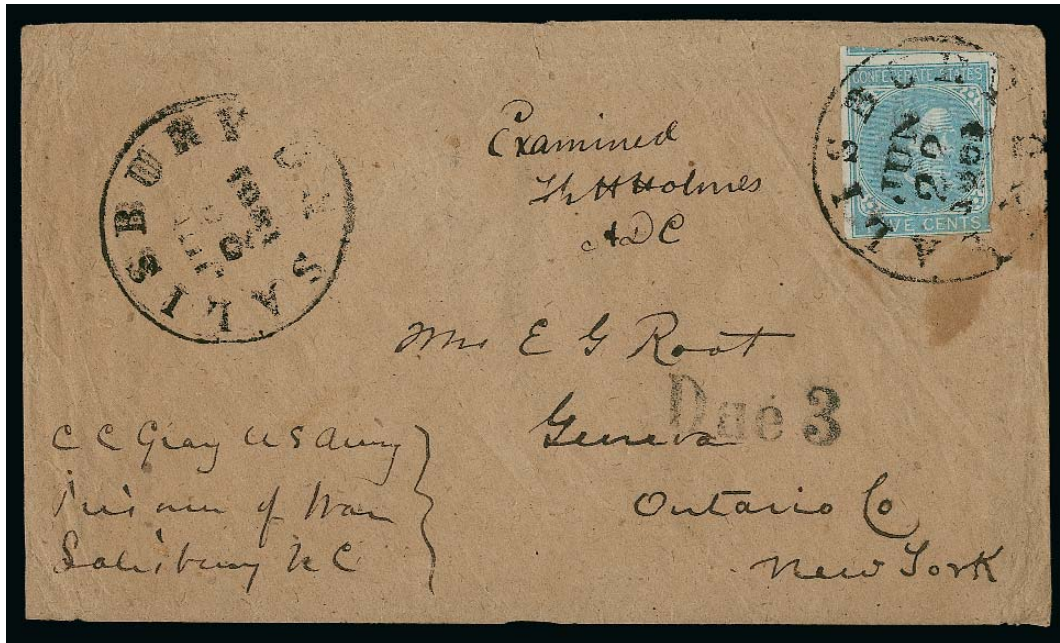 SALISBURY N.C.
CONFEDERATE STATES
FIVE CENTS
SALISBURY
JUN
22
Examined
Th H Holmes
ADC
Mrs E G Root
Due 3
Geneva
Ontario Co
New York
C C Gray U S Army
Prisoner of War
Salisbury N C